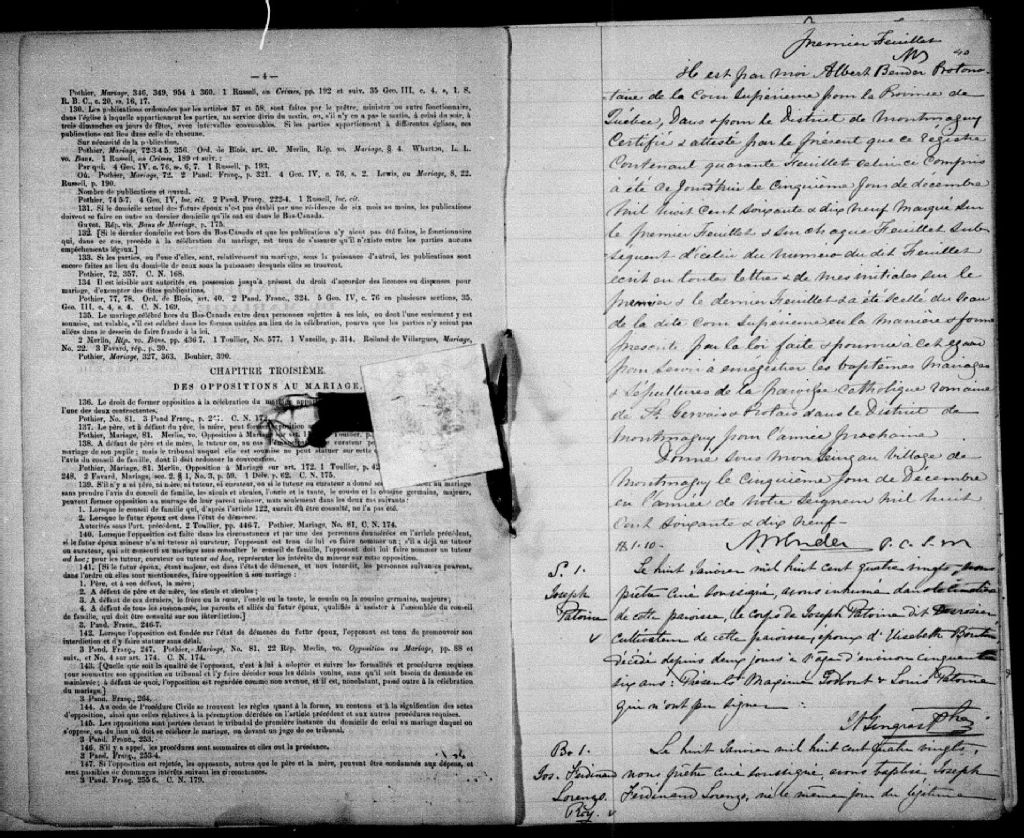 — 4 —
Pothier, Mariage, 346, 349, 954 à 360. 1 Russell, on Crimes, pp. 192 et suiv. 35 Geo. III, c. 4, s, 1, 8.
R. B. C., c. 20, ss. 16, 17.
130. Les publications ordonnées par les articles 57 et 58, sont faites par le prêtre, ministre ou autre fonctionnaire,
dans l'église à laquelle appartiennent les parties, au service divin du matin, ou, s'il n'y en a pas le matin, à celui du soir, à
trois dimanches ou jours de fêtes, avec intervalles convenables. Si les parties appartiennent à différentes églises, ces
publications ont lieu dans celle de chacune.
Sur nécessité de la publication.
Pothier, Mariage, 72-3-4-5, 356. Ord. de Blois, art. 40. Merlin, Rép. vo. Mariage, § 4. Wharton, L. L.
vo. Bans. 1 Russell, on Crimes, 189 et suiv.:
Par qui. 4 Geo. IV, c. 76, ss. 6, 7. 1 Russell, p. 193.
Où. Pothier, Mariage, 72. 2 Pand. Franç., p. 321. 4 Geo. IV, c. 76, s. 2. Lewis, on Mariage, 8, 22.
Russell, p. 190.
Nombre de publications et quand.
Pothier, 74 5-7. 4 Geo. IV, loc. cit. 2 Pand. Franç., 222-4. 1 Russell, loc. cit.
131. Si le domicile actuel des futurs époux n'est pas établi par une résidence de six mois au moins, les publications
doivent se faire en outre au dernier domicile qu'ils ont eu dans le Bas-Canada.
Guyot, Rép. vis. Bans de Mariage, p. 175.
132. [Si le dernier domicile est hors du Bas-Canada et que les publications n'y aient pas été faites, le fonctionnaire
qui, dans ce cas, procède à la célébration du mariage, est tenu de s'assurer qu'il n'existe entre les parties aucuns
empêchements légaux.]
133. Si les parties, ou l'une d'elles, sont, relativement au mariage, sous la puissance d'autrui, les publications sont
encore faites au lieu du domicile de ceux sous la puissance desquels elles se trouvent.
Pothier, 72, 357. C. N. 168.
134. Il est loisible aux autorités en possession jusqu'à présent du droit d'accorder des licences ou dispenses pour
mariage, d'exempter des dites publications.
Pothier, 77, 78. Ord. de Blois, art. 40. 2 Pand. Franç., 324. 5 Geo. IV, c. 76 en plusieurs sections, 35,
Geo. III, c. 4, s. 4. C. N. 169.
135. Le mariage célébré hors du Bas-Canada entre deux personnes sujettes à ses lois, ou dont l'une seulement y est
soumise, est valable, s'il est célébré dans les formes usitées au lieu de la célébration, pourvu que les parties n'y soient pas
allées dans le dessein de faire fraude à la loi.
2 Merlin, Rép. vo. Bans, pp. 436 7. 1 Toullier, No. 577. 1 Vazeille, p. 314. Rolland de Villargues, Mariage,
No. 22. 3 Favard, rép., p. 30.
Pothier, Mariage, 327, 363. Bouhier, 390.
CHAPITRE TROISIÈME.
DES OPPOSITIONS AU MARIAGE.
136. Le droit de former opposition à la célébration du mariage
l'une des deux contractantes.
Pothier, No. 81. 3 Pand Franç., p. C. N.
137. Le père, et à défaut du père, la mère, peut former opposition
Pothier, Mariage, 81. Merlin, vo. Opposition à Mariage Toullier,
138. A défaut de père et de mère, le tuteur ou,
mariage de son pupille; mais le tribunal auquel elle est soumise ne peut statuer sur cette
de famille, dont il doit ordonner la convocation.
Pothier, Mariage, 81. Merlin, Opposition à Mariage sur art. 172. 1 Toullier, p. 42
248. 2 Favard, Mariage, sec. 2, § 1, No. 3, p. 59. 1 Delv. p. 62. C. N. 175.
139. S'il n'y a ni père, ni mère, ni tuteur, ni curateur, ou si le tuteur ou curateur a donné
sans prendre l'avis du conseil de famille, les aïeuls et aïeules, l'oncle et la tante, le cousin et la cousine germains, majeurs,
peuvent former opposition au mariage de leur parent mineur, mais seulement dans les deux cas suivants:
1. Lorsque le conseil de famille qui, d'après l'article 122, aurait dû être consulté, ne l'a pas été.
2. Lorsque le futur époux est dans l'état de démence.
Autorités sous l'art. précédent, 2 Toullier, pp. 446-7. Pothier, Mariage, No. 81, C. N. 174.
140. Lorsque l'opposition est faite dans les circonstances et par une des personnes énumérées en l'article précédent,
si le futur époux mineur n'a ni tuteur ni curateur, l'opposant est tenu de lui en faire nommer un; s'il a déjà un tuteur
ou curateur, qui ait consenti au mariage sans consulter le conseil de famille, l'opposant doit lui faire nommer un tuteur
ad hoc; pour les tuteur, curateur ou tuteur ad hoc, représenter les intérêts du mineur sur cette opposition.
141. [Si le futur époux, étant majeur, est dans l'état de démence, et non interdit, les personnes suivantes peuvent,
dans l'ordre où elles sont mentionnées, faire opposition à son mariage:
1. Père, et à son défaut, la mère;
2. A défaut de père et de mère, les aïeuls et aïeules;
3. A défaut de ces derniers, le frère ou la sœur, l'oncle ou la tante, le cousin ou la cousine germains, majeurs;
4. A défaut de tous les susnommés, les parents et alliés du futur époux, qualifiés à assister à l'assemblée du conseil
de famille, qui doit être consulté sur son interdiction.]
3. Pand. Franç., 246-7.
142. Lorsque l'opposition est fondée sur l'état de démence du futur époux, l'opposant est tenu de promouvoir son
interdiction et d'y faire statuer sans délai.
3 Pand. Franç., 247. Pothier, Mariage, No. 81, 22 Rép. Merlin, vo. Opposition au Mariage, pp. 88 et
suiv., et No. 4 sur art. 174. C. N. 174.
143. [Quelle que soit la qualité de l'opposant, c'est à lui à adopter et suivre les formalités et procédures requises
pour soumettre son opposition au tribunal et l'y faire décider sous les délais voulus, sans qu'il soit besoin de demande en
mainlevée; à défaut de quoi, l'opposition est regardée comme non avenue, et il est, nonobstant, passé outre à la célébration
du mariage.]
3 Pand. Franç., 264.
144. Au code de Procédure Civile se trouvent les règles quant à la forme, au contenu et à la signification des actes
d'opposition, ainsi que celles relatives à la péremption décrétée en l'article précédent et aux autres procédures requises.
145. Les oppositions sont portées devant le tribunal de première instance du domicile de celui au mariage duquel on
s'oppose, ou du lieu où doit se célébrer le mariage, ou devant un juge de ce tribunal.
3 Pand. Franç., 253.
146. S'il y a appel, les procédures sont sommaires et elles ont la préséance.
3 Pand. Franç., 253-4.
147. Si l'opposition est rejetée, les opposants, autres que le père et la mère, peuvent être condamnés aux dépens, et
sont passibles de dommages intérêts suivant les circonstances.
3 Pand. Franç., 255 6. C. N. 179.
Premier Feuillet
40
Il est par moi Albert Bender Protono-
taire de la Cour Supérieure pour la Province de
Québec, Dans & pour le District de Montmagny
Certifié & attesté par le présent que ce Régistre
Contenant quarante Feuillets celui ci compris
a été ce Jourd'hui le Cinquième Jour de décembre
Mil huit Cent Soixante & dix neuf Marqué sur
le premier Feuillet & sur chaque Feuillet Sub-
séquent d'icelui du numéro du dit Feuillet
écrit en toutes lettres & de mes initiales sur le
premier & le dernier Feuillet & a été scellé du sceau
de la dite Cour Supérieure en la manière & forme
prescrite par la loi faite & pourvue à cet égard
pour servir à enrégistrer les baptêmes mariages
& Sépultures de la paroisse Catholique romaine
de St Gervais & Protais dans le District de
Montmagny pour l'année prochaine
Donné sous mon Seing au Village de
Montmagny le Cinquième Jour de Décembre
en l'année de Notre Seigneur Mil huit
Cent Soixante & dix neuf—
A Bender P. C. S. M
S. 1.
Joseph
Patoine
Le huit Janvier mil huit cent quatre vingts, nous
prêtre curé soussigné, avons inhumé dans le cimetière
de cette paroisse, le corps de Joseph Patoine dit
cultivateur de cette paroisse, époux d'Elisabeth Boutin
décédé depuis deux jours à l'âge d'environ cinquante
six ans: Présents Maxime Godbout & Louis Patoine
qui n'ont pu signer
N Gingras Ptre
B. 1.
Jos. Ferdinand
Lorenzo
Roy
Le huit Janvier mil huit cent quatre vingts,
nous prêtre curé soussigné, avons baptisé Joseph
Ferdinand Lorenzo, né le même jour du légitime